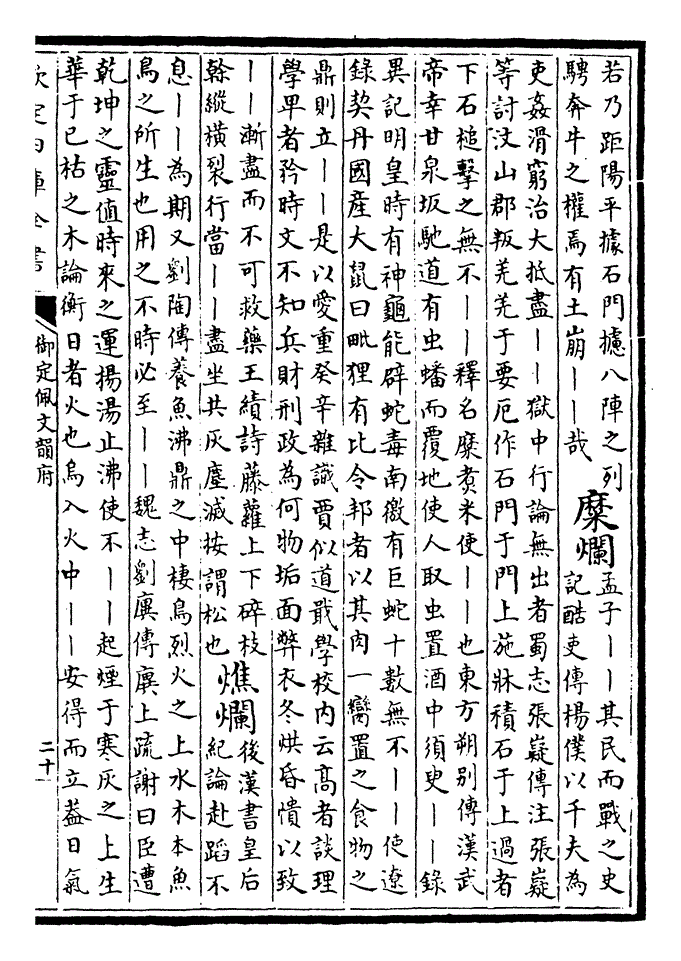 若乃距陽平據石門攄八陣之列
騁奔牛之權焉有土崩丨丨哉
糜爛
孟子丨丨其民而戰之史
記酷吏傳楊僕以千夫為
吏姦滑窮治大抵盡丨丨獄中行論無出者蜀志張嶷傳注張嶷
等討汶山郡叛羌羌于要厄作石門于門上施牀積石于上過者
下石槌擊之無不丨丨釋名糜煮米使丨丨也東方朔別傳漢武
帝幸甘泉坂馳道有虫蟠而覆地使人取虫置酒中須臾丨丨錄
異記明皇時有神龜能辟蛇毒南徼有巨蛇十數無不丨丨使遼
錄契丹國產大鼠曰毗狸有比令邦者以其肉一臠置之食物之
鼎則立丨丨是以愛重癸辛雜識賈似道戢學校内云高者談理
學卑者矜時文不知兵財刑政為何物垢面弊衣冬烘昏憒以致
丨丨漸盡而不可救藥王績詩藤蘿上下碎枝
幹縱橫裂行當丨丨盡坐共灰塵滅按謂松也
燋爛
後漢書皇后
紀論赴蹈不
息丨丨為期又劉陶傳養魚沸鼎之中棲鳥烈火之上水木本魚
鳥之所生也用之不時必至丨丨魏志劉廙傳廙上疏謝曰臣遭
乾坤之靈值時來之運揚湯止沸使不丨丨起煙于寒灰之上生
華于已枯之木論衡日者火也烏入火中丨丨安得而立葢日氣
欽定四庫全書
御定佩文韻府
二十